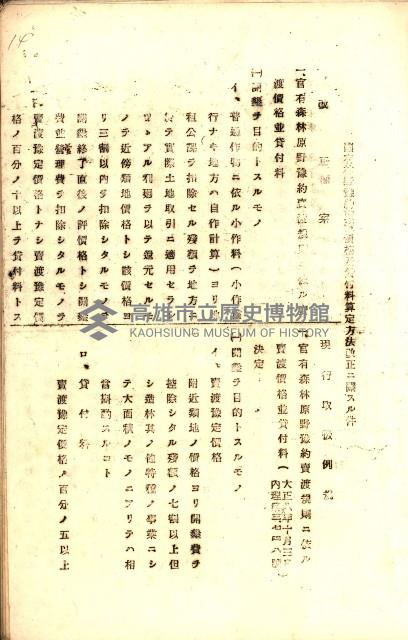 14
官有森林原野豫約賣渡價格並貸付料算定方法改正ニ關スル件
改正案
一、官有森林原野豫約賣渡規則ニ依ル賣
渡價格並貸付料
(一)開墾ヲ目的トスルモノ
イ、普通作物ニ依ル小作料(小作慣
行ナキ地方ハ自作計算)ヨリ地
租公課ヲ扣除セル殘額ヲ地方ニ
於テ實際土地取引ニ適用セラレ
ツヽアル利廻ヲ以テ還元セルモ
ノヲ近傍類地價格トシ該價格ヨ
リ三割以內ヲ扣除シタルモノヲ
開墾終了直後ノ評價格トシ開墾
費並管理費ヲ扣除シタルモノヲ
賣渡豫定價格トナシ賣渡豫定價
格ノ百分ノ十以上ヲ貸付料トス
現行取扱例規
一、官有森林原野豫約賣渡規則ニ依ル
賣渡價格並貸付料(大正八年十月三日
內理第三七四八號)
決定
(一)開墾ヲ目的トスルモノ
イ、賣渡豫定價格
附近類地ノ價格ヨリ開墾費ヲ
控除シタル殘額ノ七割以上但
シ造林其ノ他特種ノ事業ニシ
テ大面積ノモノニアリテハ相
當斟酌スルコト
ロ、貸付料
賣渡豫定價格ノ百分ノ五以上
高雄市立歷史博物館
KAOHSIUNG MUSEUM OF HISTORY